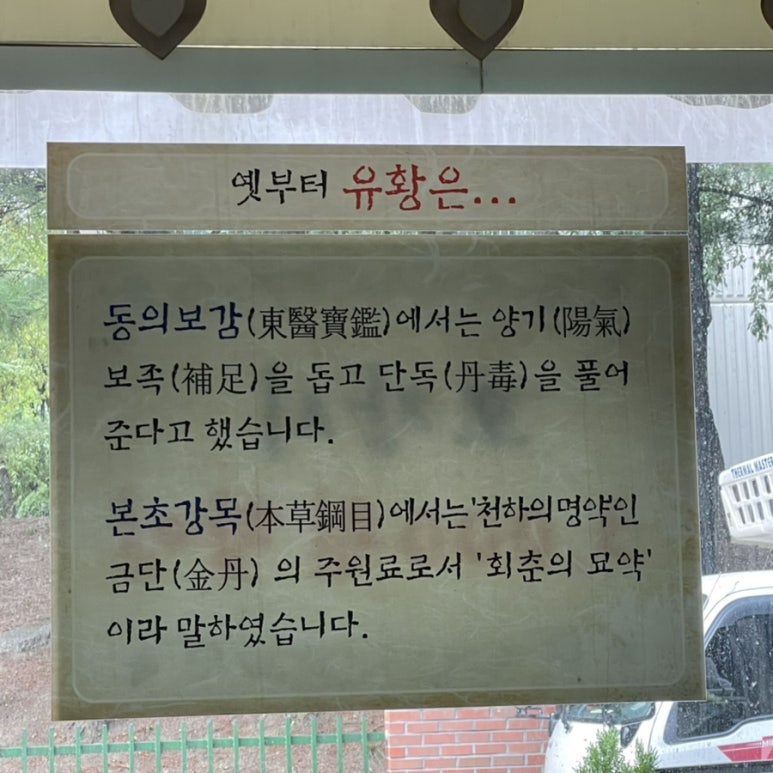 옛부터 유황은...
동의보감(東醫寶鑑)에서는 양기(陽氣)
보족(補足)을 돕고 단독(丹毒)을 풀어
준다고 했습니다.
본초강목(本草鋼目)에서는'천하의명약인
금단(金丹) 의 주원료로서 '회춘의 묘약'
이라 말하였습니다.
THERMAL MASTER